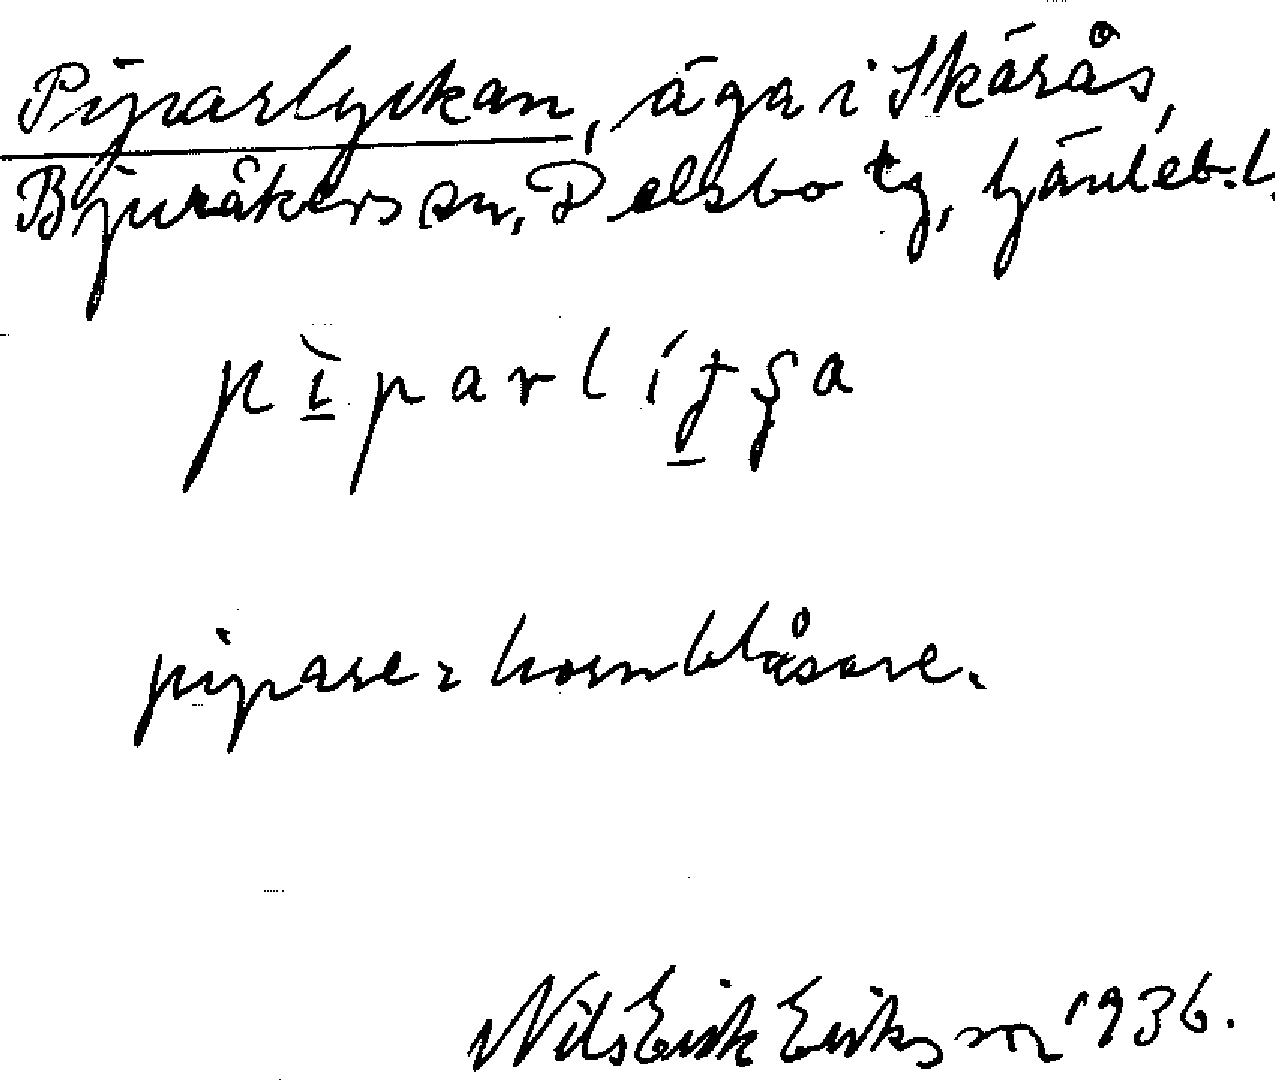 Piparlyckan, äga i Skärås,
Bjuråkers sn, Delsbo tg, Gävleb. l.
piparli
pipare = hornblåsare.
Nils Erik Eriksson 1936.